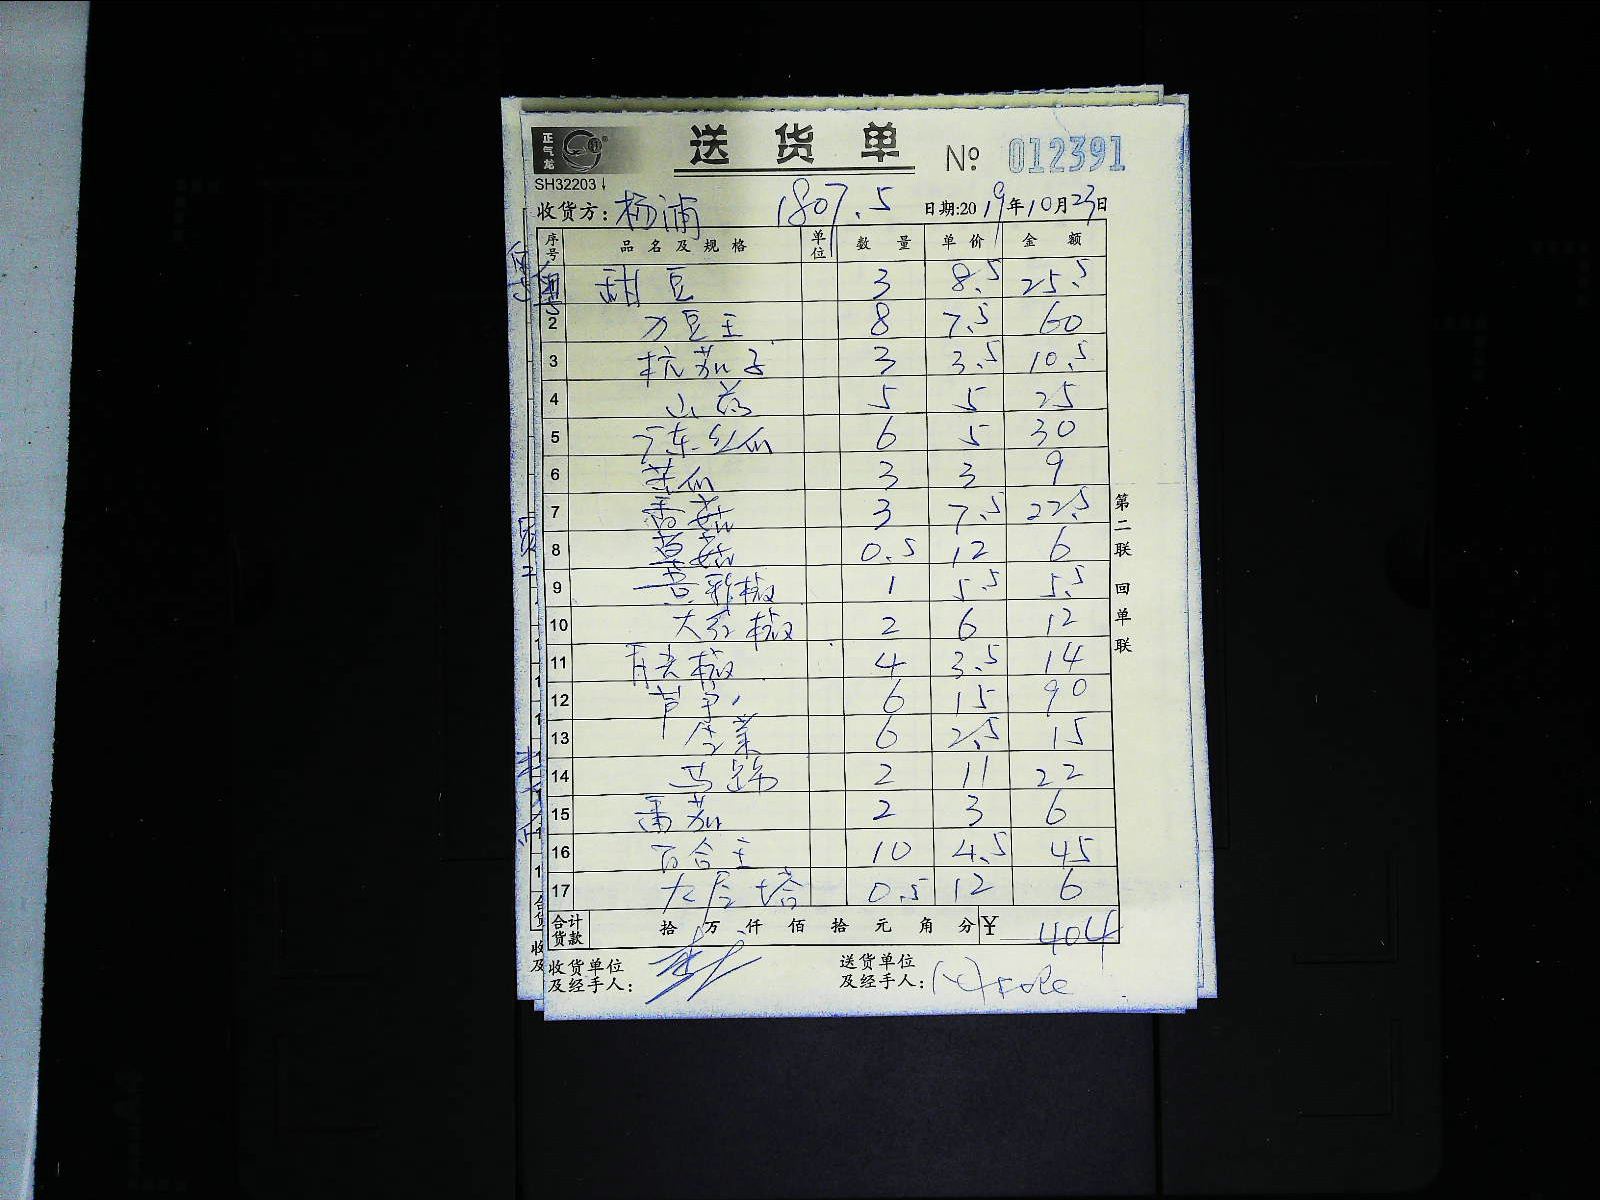 正气龙
送货单
№ 012391
SH32203
收货方: 杨浦 1807.5 日期:2019年10月23日
序号 品名及规格 单位 数量 单价 金额
甜豆 3 8.5 25.5
2 刀豆王 8 7.5 60
3 杭茄子 3 3.5 10.5
4 山药 5 5 25
5 广东丝瓜 6 5 30
6 苦瓜 3 3 9
7 香菇 3 7.5 22.5
8 草菇 0.5 12 6
9 黄彩椒 1 5.5 5.5
10 大红椒 2 6 12
11 青尖椒 4 3.5 14
12 芦笋 6 15 90
13 生菜 6 2.5 15
14 马蹄 2 11 22
15 番茄 2 3 6
16 百合王 10 4.5 45
17 九层塔 0.5 12 6
合计货款 拾 万 仟 佰 拾 元 角 分 ¥ 404
收货单位及经手人:
送货单位及经手人:
第二联 回单联